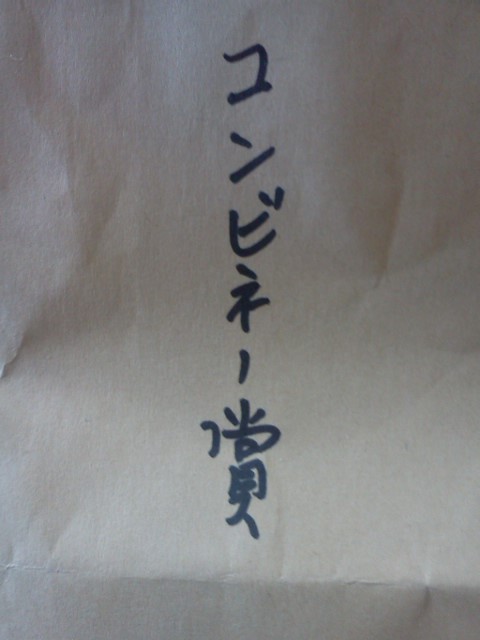 コンビネー賞